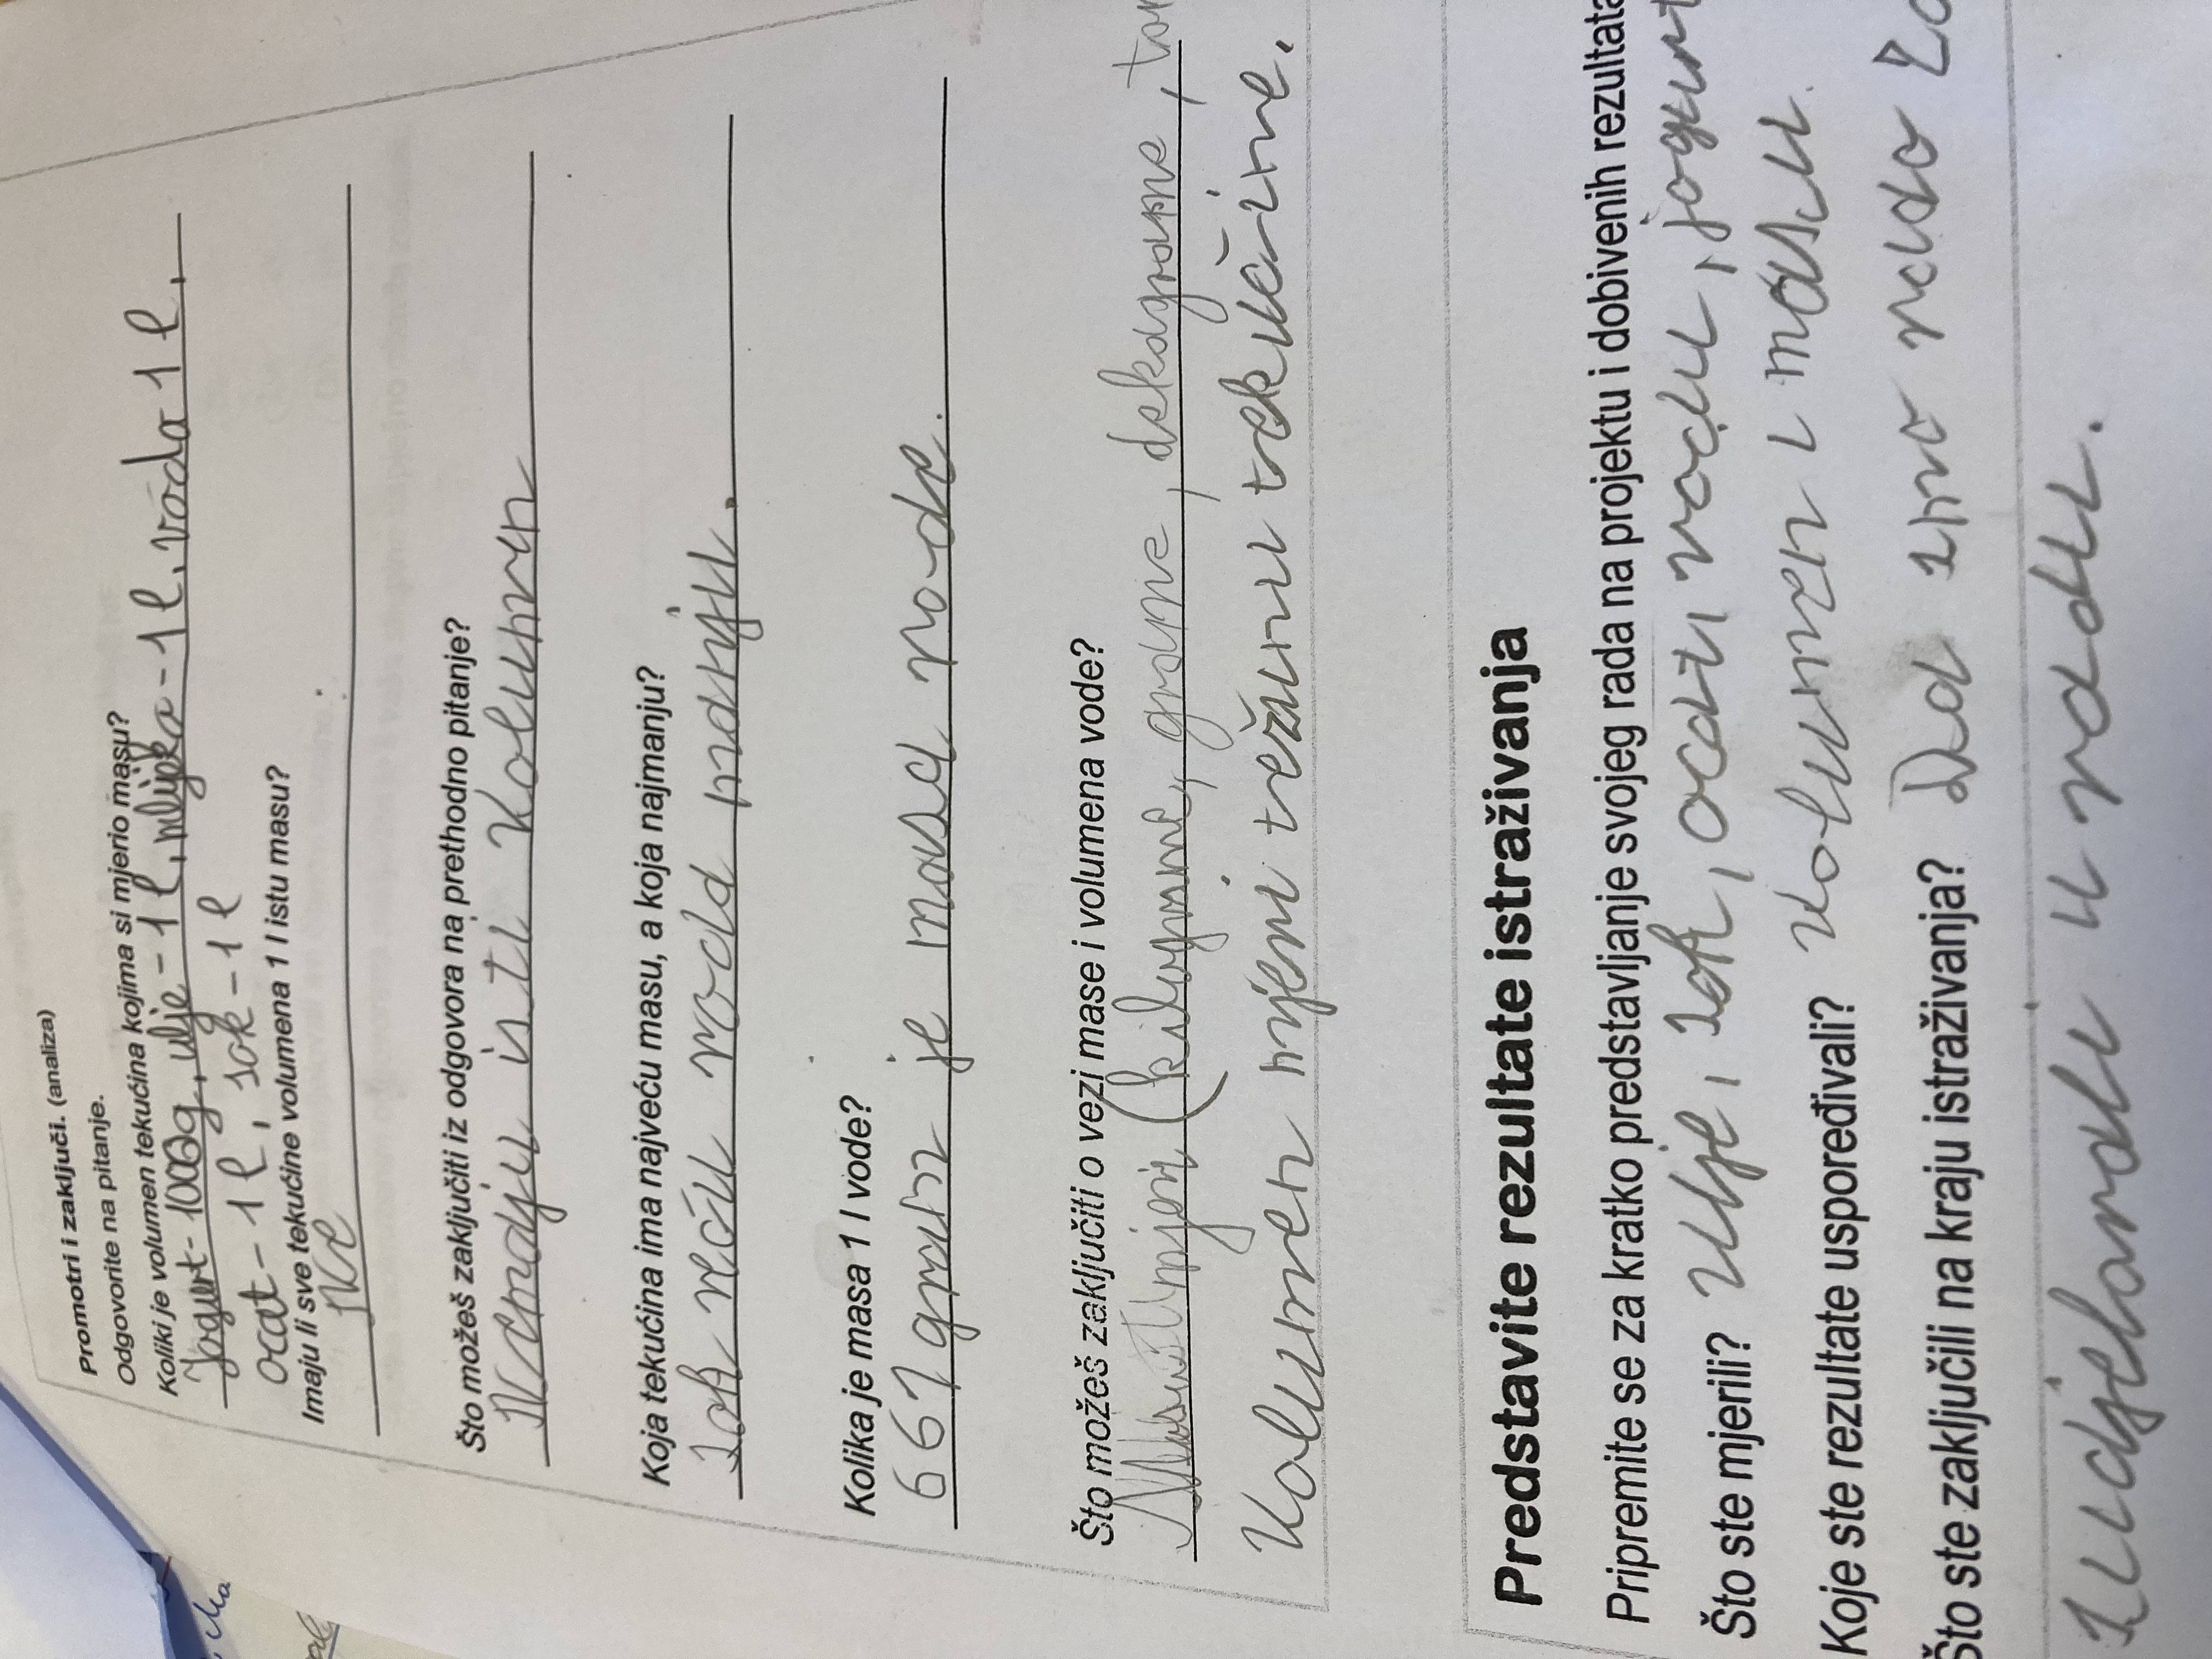 Promotri i zaključi. (analiza)
Odgovorite na pitanje.
Koliki je volumen tekućina kojima si mjerio masu?
Jogurt - 1000g, ulje - 1 l, mlijeko - 1 l, voda 1 l,
ocat - 1 l, sok - 1 l
Imaju li sve tekućine volumena 1 l istu masu?
Ne
Što možeš zaključiti iz odgovora na prethodno pitanje?
Nemaju isti volumen
Koja tekućina ima najveću masu, a koja najmanju?
Sok veću voda manju.
Kolika je masa 1 l vode?
667 grama je masa vode.
Što možeš zaključiti o vezi mase i volumena vode?
mjeri (kilograme, grame, dekagrame,
Volumen mjeri težinu tekućine.
Predstavite rezultate istraživanja
Pripremite se za kratko predstavljanje svojeg rada na projektu i dobivenih rezultata
Što ste mjerili? Ulje, sok, ocat, vodu, jogurt
Koje ste rezultate uspoređivali? volumen i masu.
Što ste zaključili na kraju istraživanja? Da smo
sudjelovali u radu.